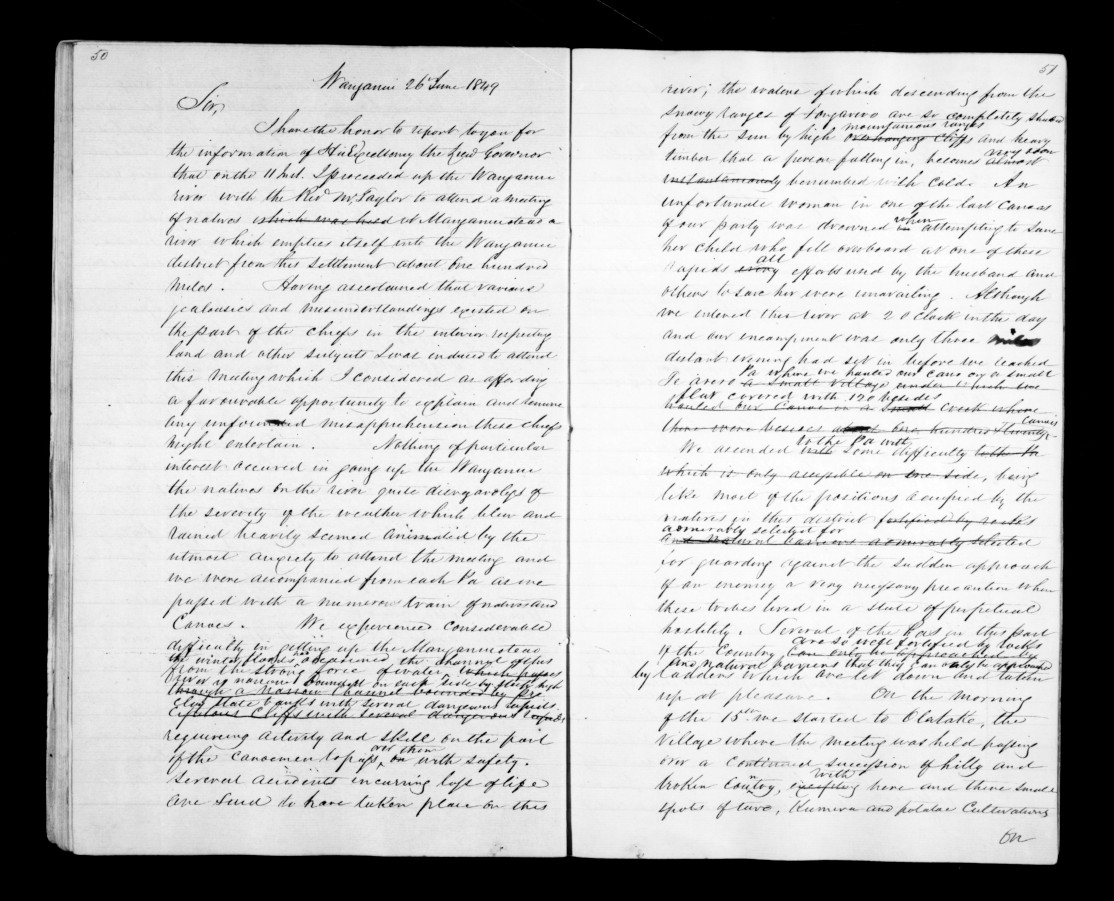 50
Wanganui 26 June 1849
Sir,
I have the honor to report to you for
the information of His Excellency the Lieut Governor
that on the 11 Inst. I proceeded up the Wanganui
river with the Revd Mr Taylor to attend a meeting
of natives which was held at Manganuioteao a
river which empties itself into the Wanganui
district from this Settlement about One hundred
miles. Having ascertained that various
jealousies and misunderstandings existed on
the part of the Chiefs in the interior respecting
land and other subjects I was induced to attend
this meeting which I considered as affording
a favourable opportunity to explain and remove
any unfounded misapprehension these chiefs
might entertain. Nothing of particular
interest occurred in going up the Wanganui
the natives on the river quite disregardless of
the severity of the weather which blew and
rained heavily seemed animated by the
utmost anxiety to attend the meeting and
we were accompanied from each Pa as we
passed with a numerous train of natives and
Canoes. We experienced considerable
difficulty in getting up the Manganuioteao
the winter floods, the channel of this
from the strong force of water which passes
River is narrow bounded on each side by steep high
through a narrow channel bounded by
clay slate banks with several dangerous rapids
Cliffs with several dangerous rapids
requiring activity and skill on the part
of the canoemen to pass over them on with safety.
Several accidents incurring loss of life
are said to have taken place on this
51
river; the waters of which descending from the
snowy ranges of Tongariro are so completely shaded
from the sun by high mountainous ranges overhanging cliffs and heavy
timber that a person falling in, becomes very soon almost
instantaneously benumbed with cold. An
unfortunate woman in one of the last Canoes
of our party was drowned when in attempting to save
her child who fell overboard at one of these
rapids every all efforts used by the husband and
others to save her were unavailing. Although
we entered this river at 2 O Clock in the day
and our encampment was only three miles
distant evening had set in before we reached
Pa where we hauled our canoe up a small
Te a small village under which we
flat covered with 120 besides
hauled our Canoe on a small creek where
there were besides about One hundred & twenty Canoes
We ascended to the Pa with with some difficulty to the Pa
which is only accessible on one side, being
like most of the positions occupied by the
natives in this district fortified by rocks
admirably selected for
and natural barriers admirably selected
for guarding against the sudden approach
of an enemy a very necessary precaution when
these tribes lived in a state of perpetual
hostility. Several of the Pas in this part
of the Country are so well fortified by rocks can only be approached
and natural barriers that they can only be approached
by ladders which are let down and taken
up at pleasure. On the morning
of the 15th we started to Otatake, the
Village where the meeting was held passing
over a continued succession of hilly and
broken Country, with here and there small
spots of taro, Kumera and potatoe Cultivations
On